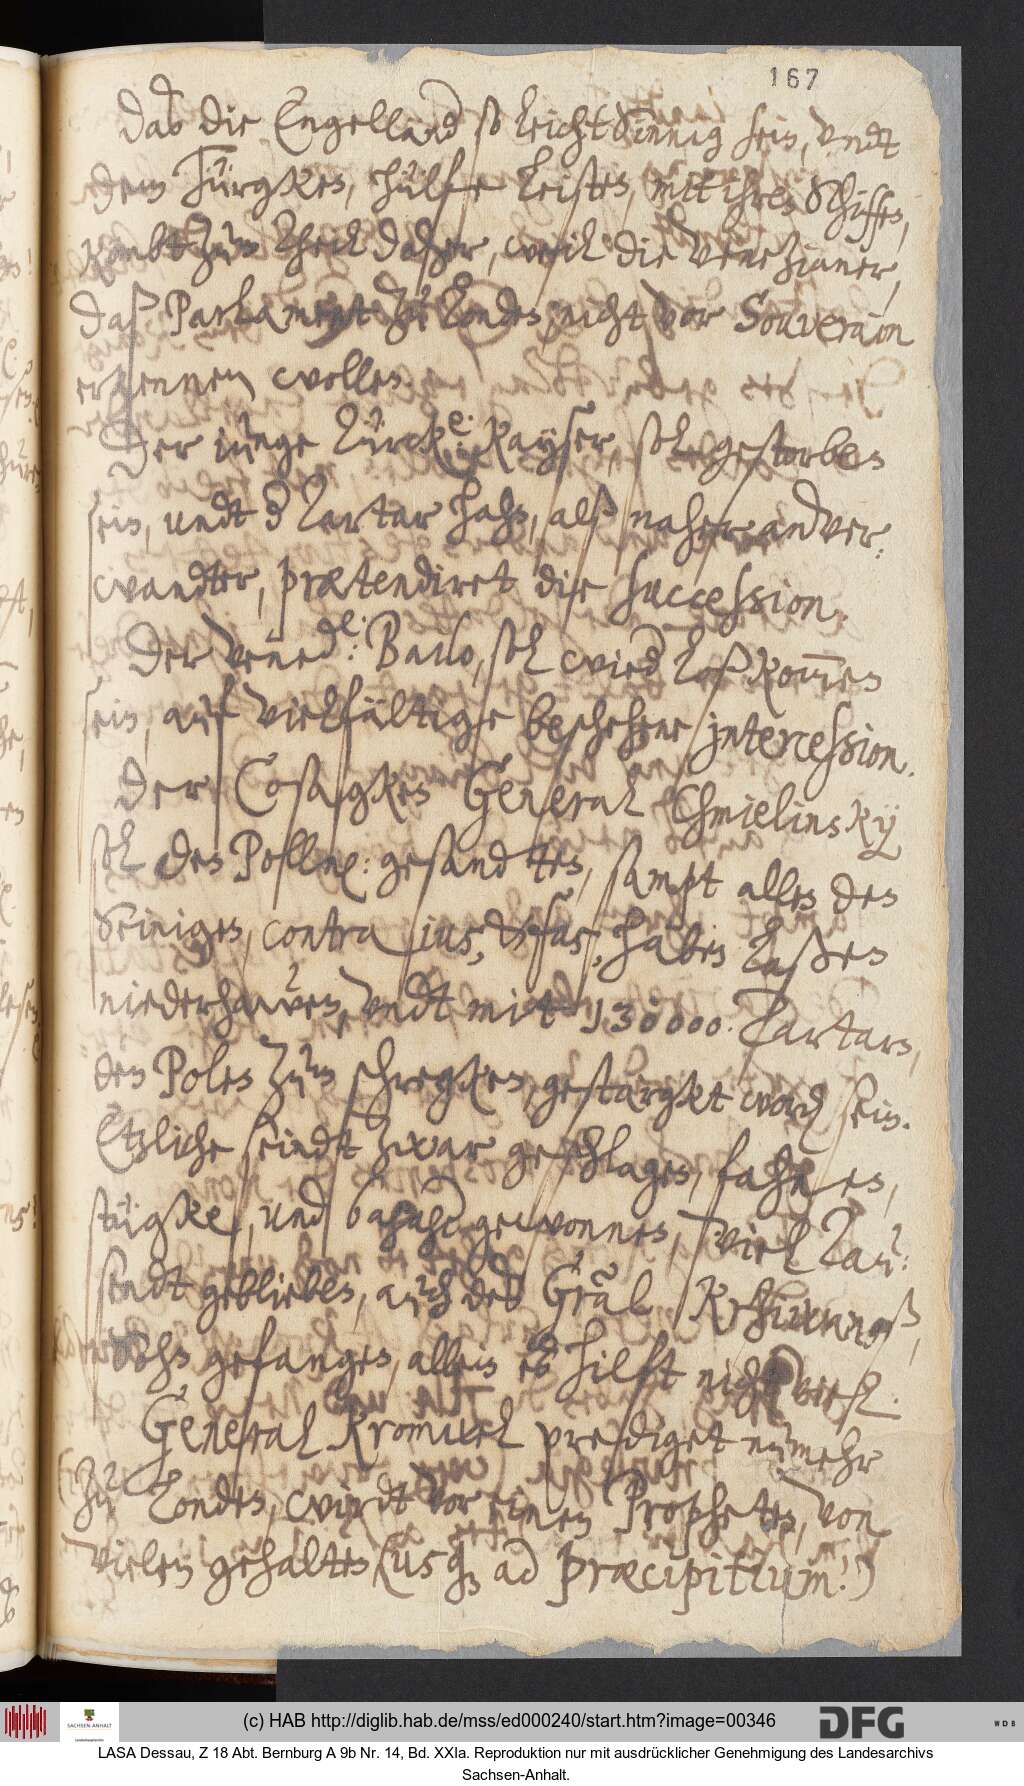 167
Das die Engelländ so leichtsinnig sein, undt
dem Türgken, hülfe leisten, mit ihren Schiffen,
kombt zum theil daher, weil die Venezianer,
daß Parlament zu Londen, nicht vor Souverain
erkennen wollen.
Der iunge Türck.e: Kayser, sol gestorben
sein, undt d Tartar Hahn, alß naher anver-
wandter, prætendiret die succession.
Der Vened.e: Bailo, sol wied loß kom̄en
sein, auf vielfältige beschehene intercession.
Der Cosagken General Chmielinsky
sol den Pollne: gesandten, sampt allen den
Seinigen, contra ius, & fas, haben laßen
niederhawen, undt mit 130000. Tartarn,
den Polen zum schregken, gestärgkt word sein.
Etzliche seindt zwar geschlagen, fahnen,
stügke, und bagage gewonnen, viel Tau-
sendt geblieben, auch des Gräl
Sohn gefangen, allein es hilft nicht viel.
General Kromwel prediget nunmehr
zu Londen, wirdt vor einen Propheten, von
vielen gehalten (usq ad præcipitium!)
(c) HAB http://diglib.hab.de/mss/ed000240/start.htm?image=00346
SACHSEN-ANHALT
DFG
WDB
LASA Dessau, Z 18 Abt. Bernburg A 9b Nr. 14, Bd. XXIa. Reproduktion nur mit ausdrücklicher Genehmigung des Landesarchivs
Sachsen-Anhalt.